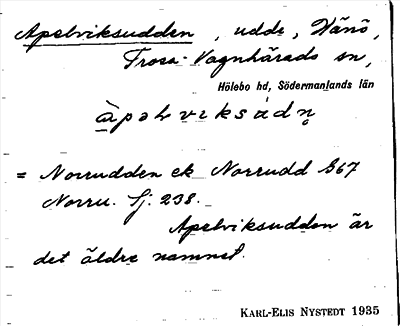 Apelviksudden, udde, Hånö,
Trosa-Vagnhärads sn,
Hölebo hd, Södermanlands län
àpəlvıksúdn̥
= Norrudden ek Norrudd G67
Norru. Sj. 238.
Apelviksudden är
det äldre namnet.
KARL-ELIS NYSTEDT 1935